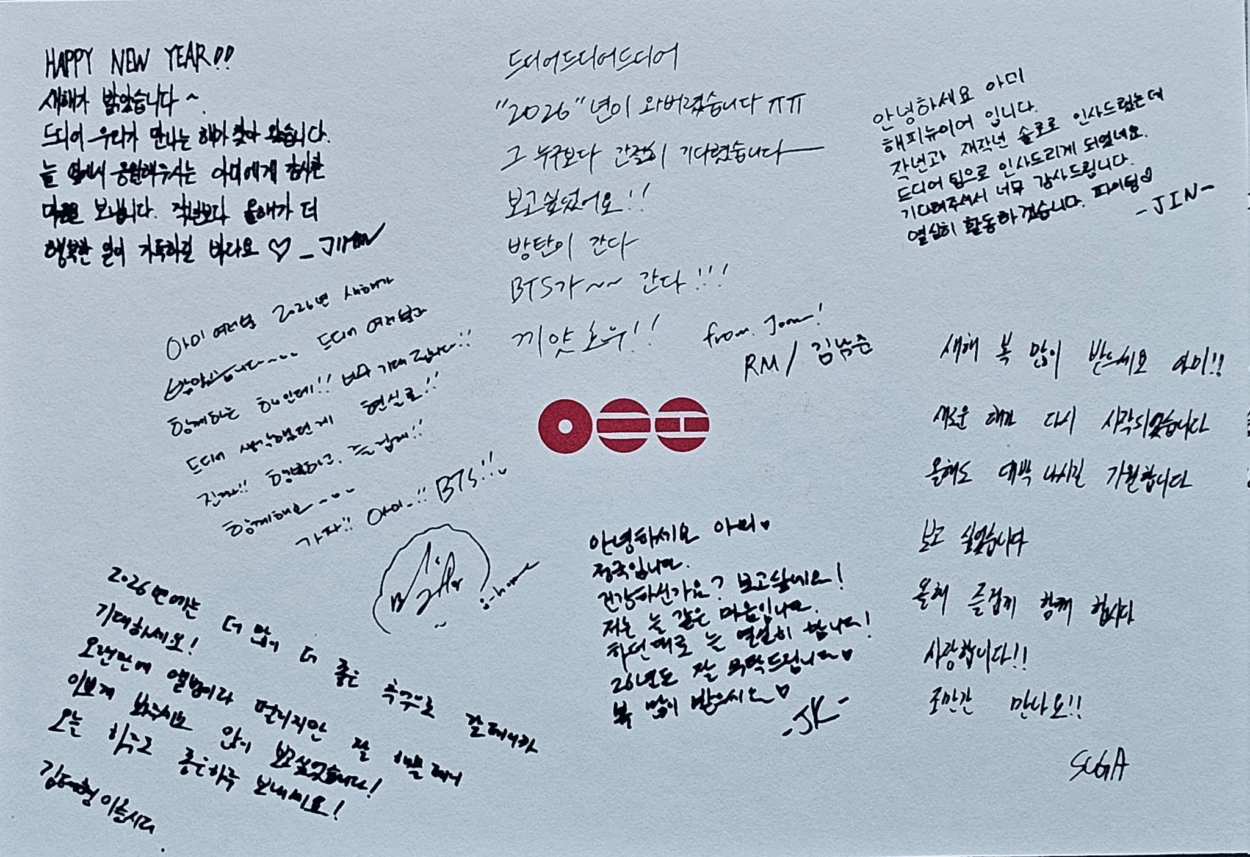 HAPPY NEW YEAR!!
새해가 밝았습니다 ~
드디어 우리가 만나는 해가 찾아 왔습니다.
늘 옆에서 응원해주시는 아미에게 감사한
마음을 보냅니다. 작년보다 올해가 더
행복한 일이 가득하길 바라요 ♡ - JIMIN
드디어드디어드디어
"2026"년이 와버렸습니다 ㅠㅠ
그 누구보다 간절히 기다렸습니다
보고싶었어요!!
방탄이 간다
BTS가~~ 간다!!!
끼얏호우!!
from. Joon!
RM / 김남준
안녕하세요 아미
해피뉴이어 입니다.
작년과 재작년 솔로로 인사드렸는데
드디어 팀으로 인사드리게 되었네요.
기다려주셔서 너무 감사드립니다.
열심히 활동하겠습니다. 파이팅♡
-JIN-
아미 여러분 2026년 새해가
밝았습니다~~~ 드디어 여러분과
함께하는 해인데!! 너무 기대됩니다!!
드디어 생각했던게 현실로!!
진짜!! 행복하고, 즐겁게!!
함께해요~~~
가자!! 아미~!! BTS!!
j-hope
새해 복 많이 받으세요 아미!!
새로운 해가 다시 시작되었습니다
올해도 대박 나시길 기원합니다
보고 싶었습니다
올해 즐겁게 함께 합시다
사랑합니다!!
조만간 만나요!!
SUGA
안녕하세요 아미♥
정국입니다.
건강하신가요? 보고싶네요!
저는 늘 같은 마음입니다.
하던대로 늘 열심히 합니다!
26년도 잘 부탁드립니다♥
복 많이 받으시오♡
-JK-
2026년에는 더 많이 더 좋은 추억으로 갈테니까
기대하세요!
오랜만에 앨범이라 떨리지만 잘 해볼 테니
이쁘게 봐주시요 많이 보고싶었습니다!
오늘 하루도 좋은하루 보내세요!
김태형 이올시다